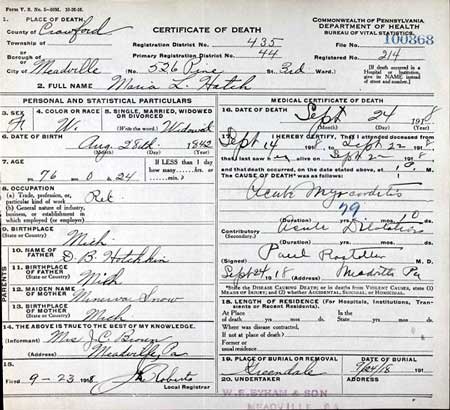 Form V. S. No. 5-
1. PLACE OF DEATH
County of Crawford
Township of
or
Borough of
or
City of Meadville
CERTIFICATE OF DEATH
Registration District No. 435
Primary Registration District No. 44
No. 526 Pine St. 3rd Ward
COMMONWEALTH OF PENNSYLVANIA
DEPARTMENT OF HEALTH
BUREAU OF VITAL STATISTICS
File No. 100368
Registered No. 214
(If death occurred in a Hospital or Institution, give its NAME instead of street and number.)
2. FULL NAME Maria L. Hatch
PERSONAL AND STATISTICAL PARTICULARS
3. SEX F
4. COLOR OR RACE W.
5. SINGLE, MARRIED, WIDOWED OR DIVORCED
(Write the word) Widowed
6. DATE OF BIRTH
Aug 28th 1842
(Month) (Day) (Year)
7. AGE
76 yrs. 0 mos. 24 ds.
IF LESS than 1 day how many hrs. or min.
8. OCCUPATION
(a) Trade, profession, or particular kind of work Ret
(b) General nature of industry, business, or establishment in which employed (or employer)
9. BIRTHPLACE
(State or Country) Mich
PARENTS
10. NAME OF FATHER D B Hotchkin
11. BIRTHPLACE OF FATHER
(State or Country) Mich
12. MAIDEN NAME OF MOTHER Minerva Snow
13. BIRTHPLACE OF MOTHER
(State or Country) Mich
14. THE ABOVE IS TRUE TO THE BEST OF MY KNOWLEDGE
(Informant) Mrs J C Brown
(Address) Meadville, Pa
15.
Filed 9-23- 1918 Roberts
Local Registrar
MEDICAL CERTIFICATE OF DEATH
16. DATE OF DEATH
Sept 24 1918
(Month) (Day) (Year)
17. I HEREBY CERTIFY, That I attended deceased from
Sept 14 1918 to Sept 22 1918
that I last saw her alive on Sept 22 1918
and that death occurred, on the date stated above, at M.
The CAUSE OF DEATH* was as follows:
Acute Myocarditis
79
(Duration) yrs. mos. 10 ds.
Contributory Acute Dilatation
(Secondary)
(Duration) yrs. mos. ds.
(Signed) M. D.
Sept 24 1918 (Address) Meadville Pa
*State the DISEASE CAUSING DEATH; or in deaths from VIOLENT CAUSES, state (1) MEANS OF INJURY; and (2) whether ACCIDENTAL, SUICIDAL, or HOMICIDAL.
18. LENGTH OF RESIDENCE (For Hospitals, Institutions, Transients or Recent Residents).
At place of death yrs. mos. ds. In the State yrs. mos. ds.
Where was disease contracted,
if not at place of death?
Former or
usual residence
19. PLACE OF BURIAL OR REMOVAL
Greendale
DATE OF BURIAL
9/24/18 191
20. UNDERTAKER
W. R. BYHAM & SON
MEADVILLE, PA.
ADDRESS